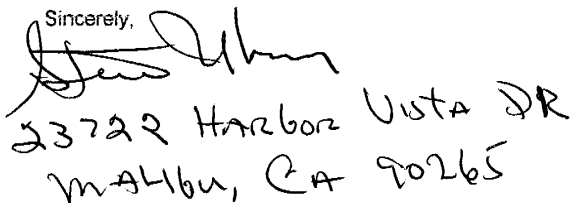 Sincerely,
23722 HARBOR VISTA DR
MALIBU, CA 90265